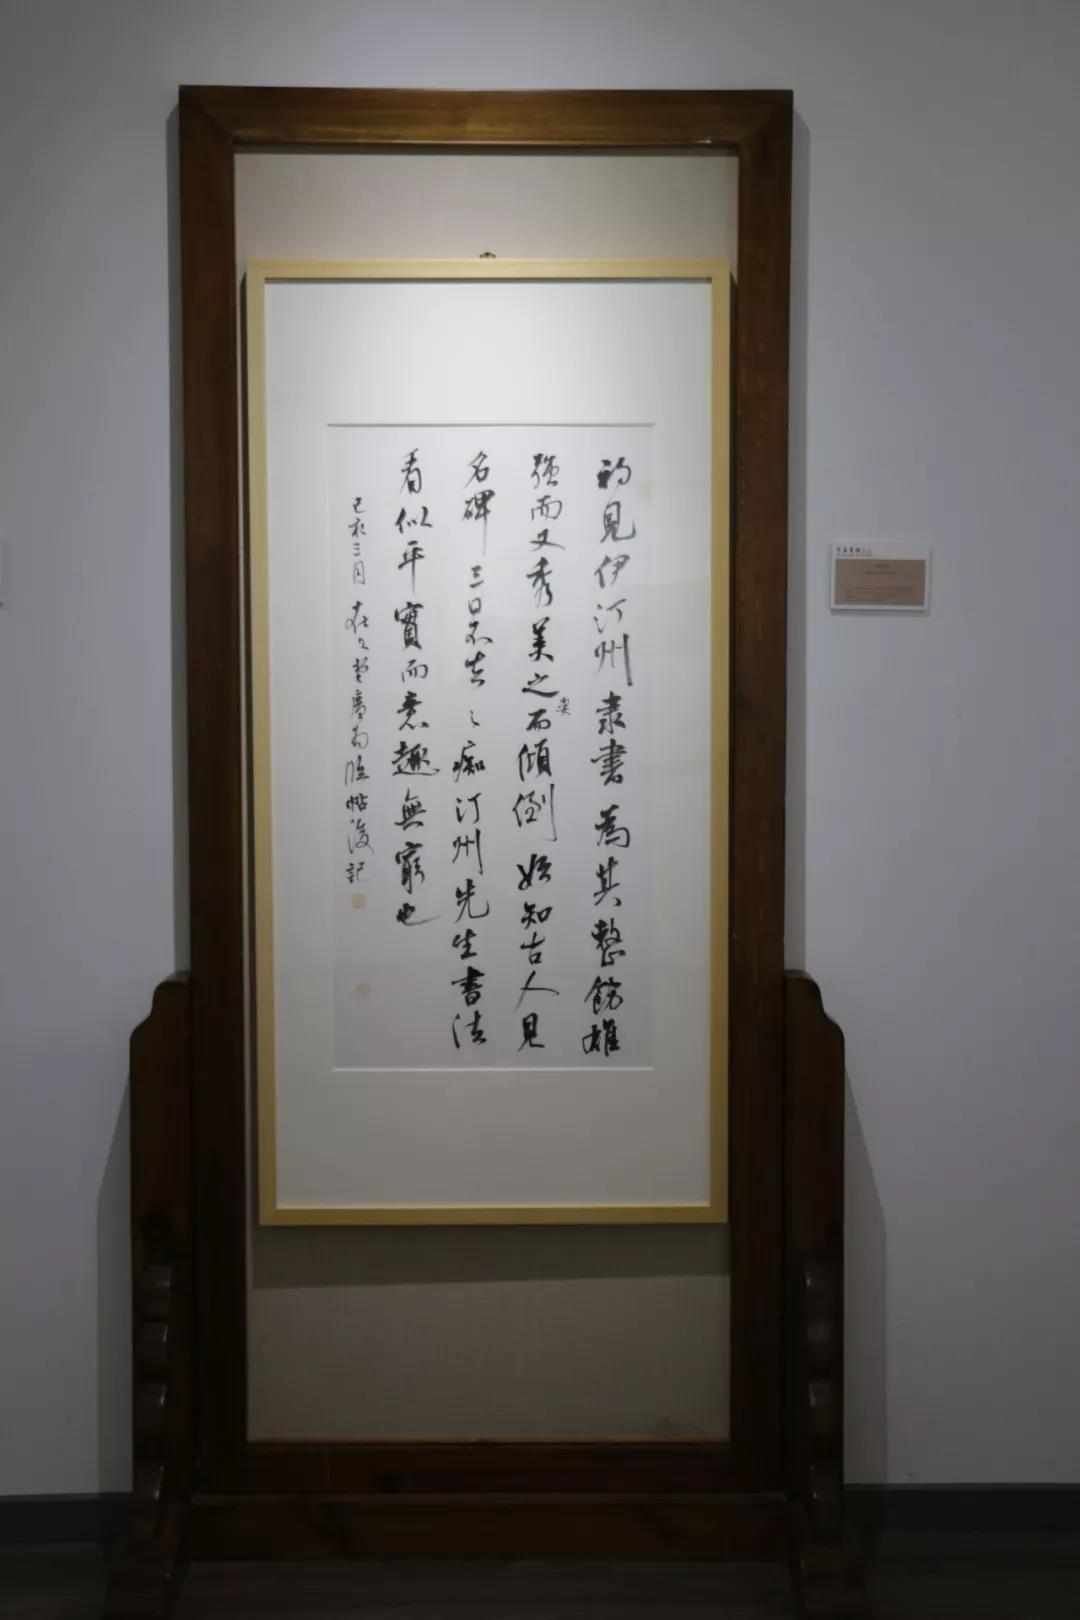 初見伊汀州隶書為其整飭雄
強而又秀美之而傾倒始知古人見
名碑三日不去之痴汀州先生書法
看似平實而意趣無窮也
己亥三月在久堂慶南臨帖後記